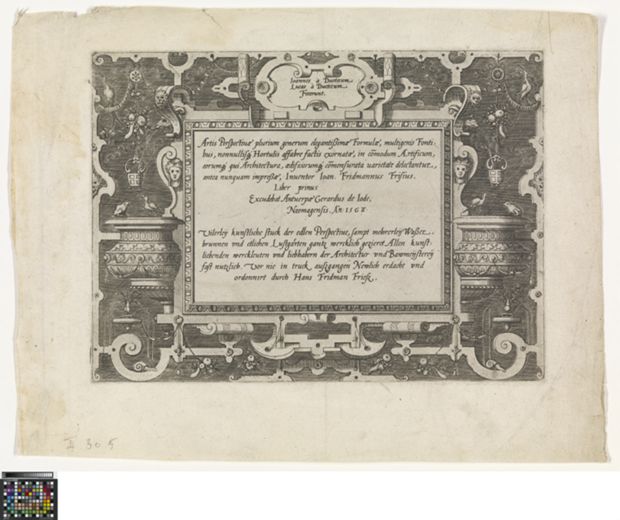 Ioannes à Duetecum
Lucas à Duetecum
Fecerunt.
Artis Perspectivæ plurium generum elegantissimæ Formulæ, multigenis Fonti-
bus, nonnullisq́ Hortulis affabre factis exornatæ, in cōmodum Artificum,
eorumq́ qui Architectura, ædificiorumq́ cōmensurata varietate delectantur.
antea nunquam impressæ, Inuentor Ioan. Fridmannus Frisius.
Liber primus
Excudebat Antuerpiæ Gerardus de Iode.
Neomagensis. Añ 1568
Vilerley kunstliche stuck der edlen Perspectiue, sampt mehrerley Wasser
brunnen vnd etlichen Lustgärten gantz wercklich gezieret Allen kunst-
liebenden werckleuten vnd liebhabern der Architectur vnd Bawmeysterey
fast nutzlich. Vor nie in truck auszgangen Newlich erdacht vnd
ordenniert durch Hans Fridman Friesz.
II 305